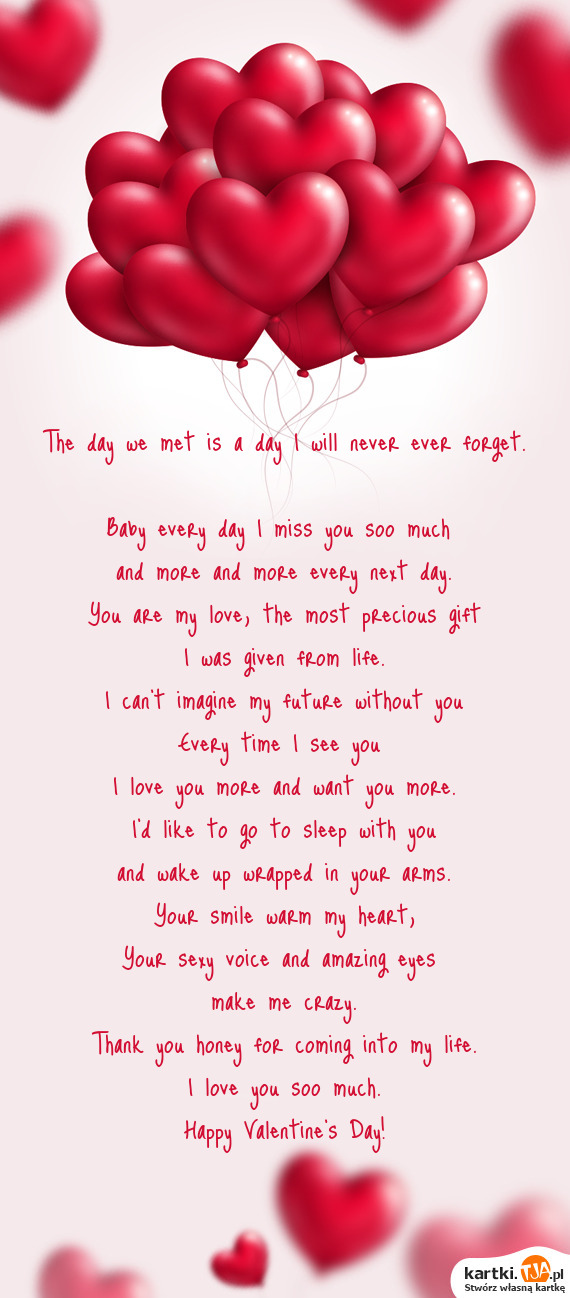 The day we met is a day I will never ever forget.
Baby every day I miss you soo much
and more and more every next day.
You are my love, the most precious gift
I was given from life.
I can't imagine my future without you
Every time I see you
I love you more and want you more.
I'd like to go to sleep with you
and wake up wrapped in your arms.
Your smile warm my heart,
Your sexy voice and amazing eyes
make me crazy.
Thank you honey for coming into my life.
I love you soo much.
Happy Valentine's Day!
kartki.TJA.pl
Stwórz własną kartkę